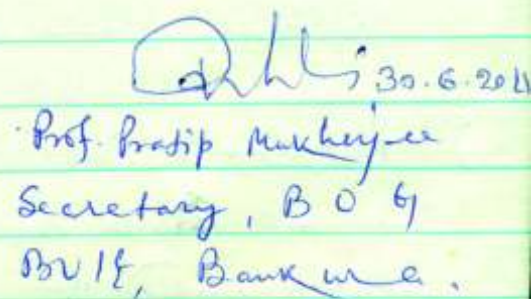 30.6.2011
Prof. Pratip Mukherjee
Secretary, B O G
Bankura.